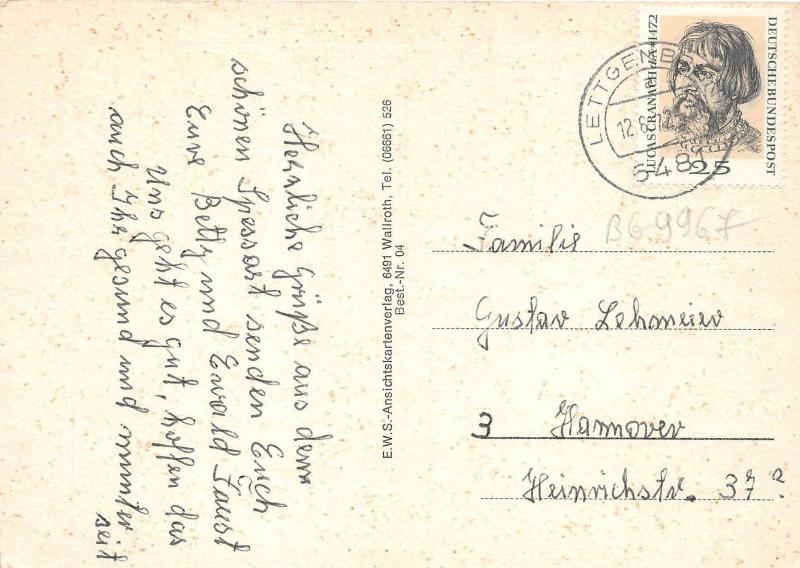 Herrliche Grüße aus dem
schönen Spessart senden Euch
Eure Betty und Ewald Faust
Uns geht es gut, hoffen das
auch Ihr gesund und munter
seit
E.W.S.-Ansichtskartenverlag, 6491 Wallroth, Tel. (06661) 526
Best.-Nr. 04
LUCAS CRANACH d.Ä. *1472
DEUTSCHE BUNDESPOST
25
LETTGENB
12.6.72
BG9967
Familie
Gustav Lehmeier
3 Hannover
Heinrichstr. 37?